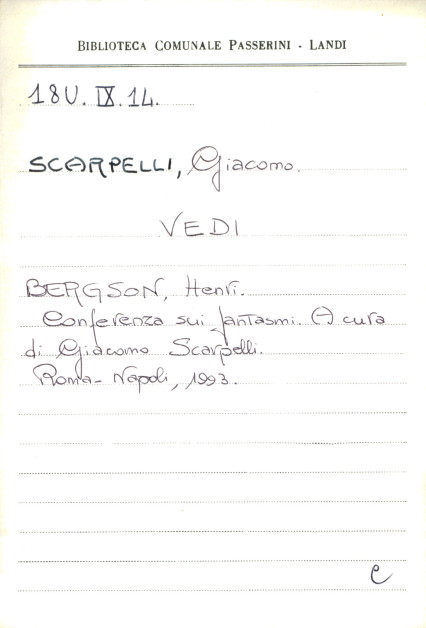 BIBLIOTECA COMUNALE PASSERINI - LANDI
18U. IX. 14.
SCARPELLI, Giacomo.
VEDI
BERGSON, Henri.
Conferenza sui fantasmi. A cura
di Giacomo Scarpelli.
Roma - Napoli, 1993.
C